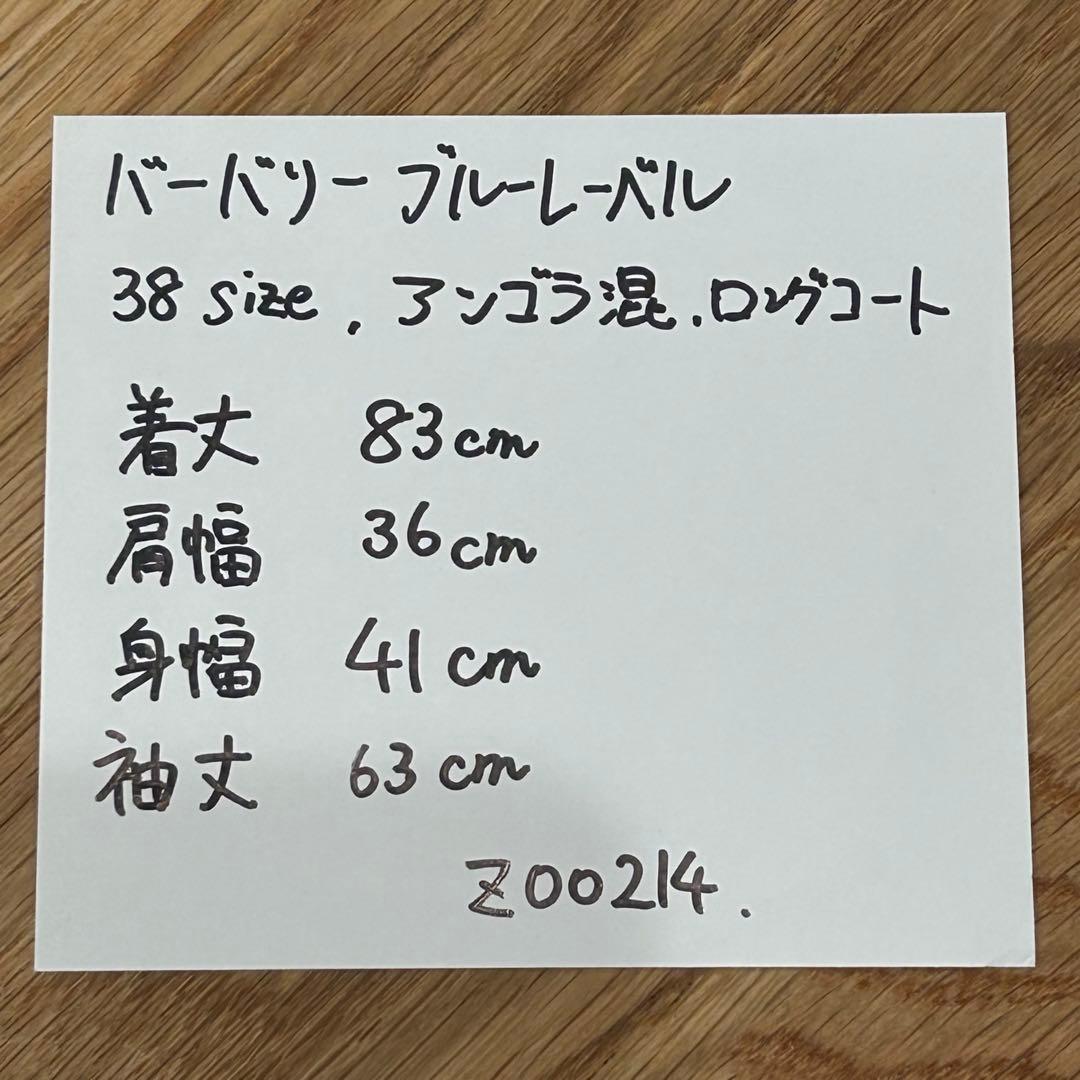 バーバリー ブルーレーベル
38 size , アンゴラ混、ロングコート
着丈 83cm
肩幅 36cm
身幅 41cm
袖丈 63cm
Z00214.